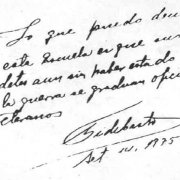 Lo que puedo decir
esta escuela es que sus
detes aun sin haber estado
la guerra se graduan
veteranos
Fidel Castro
Set 14, 1975